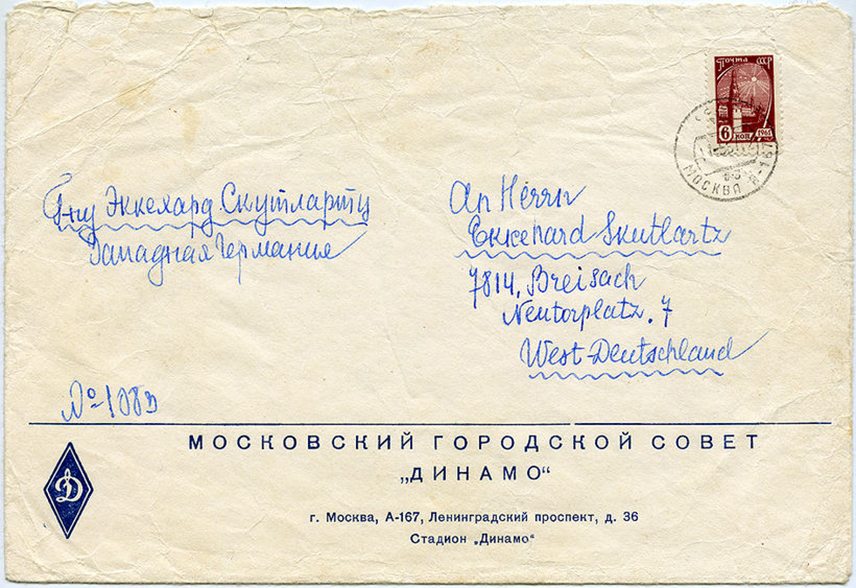 Почта СССР
6 коп 1961
МОСКВА А-167
Г-ну Эккехард Скутлартц
Западная Германия
An Herrn
Ekkehard Skutlartz
7814, Breisach
Neutorplatz. 7
West-Deutschland
№-108д
МОСКОВСКИЙ ГОРОДСКОЙ СОВЕТ
„ДИНАМО“
г. Москва, А-167, Ленинградский проспект, д. 36
Стадион „Динамо“
Д